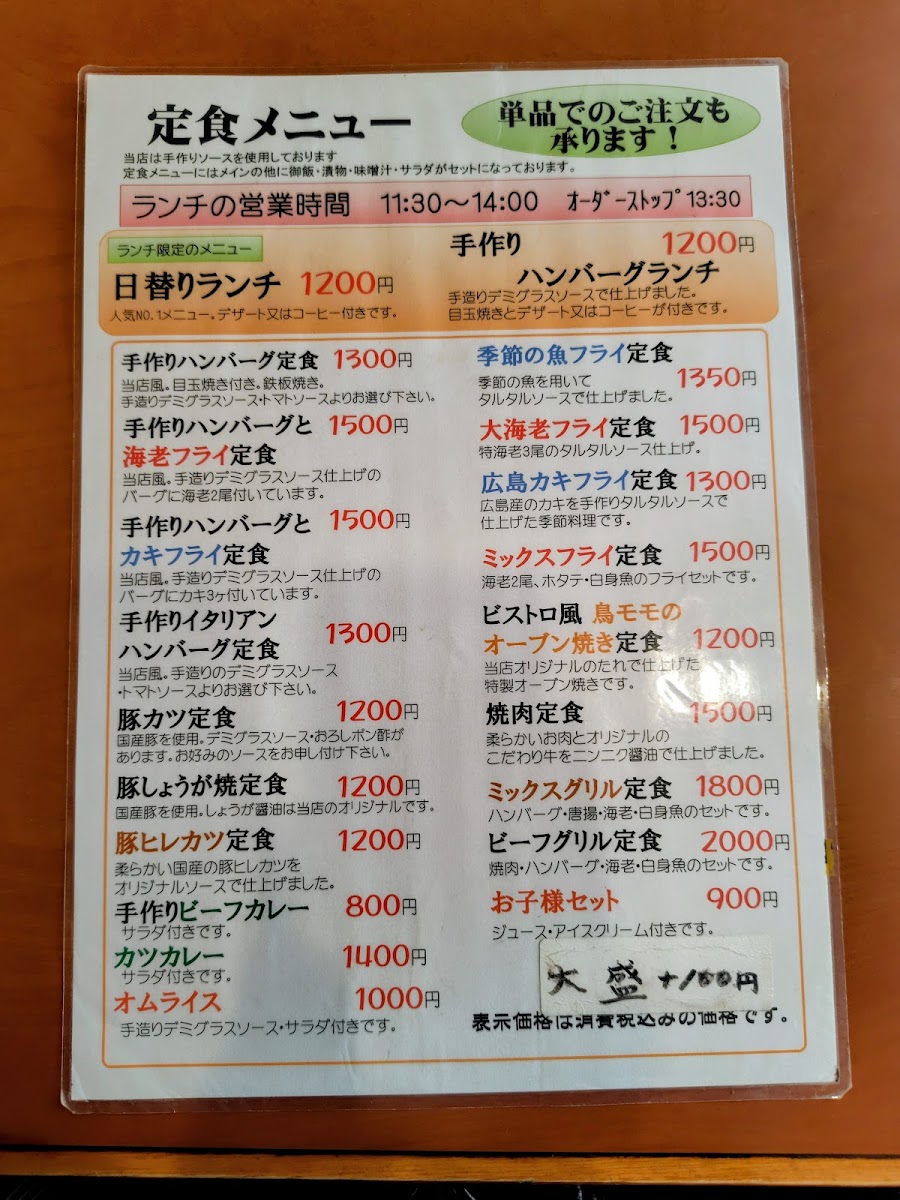 定食メニュー
単品でのご注文も
承ります!
当店は手作りソースを使用しております
定食メニューにはメインの他に御飯・漬物・味噌汁・サラダがセットになっております。
ランチの営業時間 11:30~14:00 オーダーストップ13:30
ランチ限定のメニュー
日替りランチ 1200円
人気NO.1メニュー。デザート又はコーヒー付きです。
手作り 1200円
ハンバーグランチ
手造りデミグラスソースで仕上げました。
目玉焼きとデザート又はコーヒーが付きです。
手作りハンバーグ定食 1300円
当店風。目玉焼き付き。鉄板焼き。
手造りデミグラスソース・トマトソースよりお選び下さい。
手作りハンバーグと 1500円
海老フライ定食
当店風。手造りデミグラスソース仕上げの
バーグに海老2尾付いています。
手作りハンバーグと 1500円
カキフライ定食
当店風。手造りデミグラスソース仕上げの
バーグにカキ3ヶ付いています。
手作りイタリアン
ハンバーグ定食 1300円
当店風。手造りのデミグラスソース
・トマトソースよりお選び下さい。
豚カツ定食 1200円
国産豚を使用。デミグラスソース・おろしポン酢が
あります。お好みのソースをお申し付け下さい。
豚しょうが焼定食 1200円
国産豚を使用。しょうが醤油は当店のオリジナルです。
豚ヒレカツ定食 1200円
柔らかい国産の豚ヒレカツを
オリジナルソースで仕上げました。
手作りビーフカレー 800円
サラダ付きです。
カツカレー 1400円
サラダ付きです。
オムライス 1000円
手造りデミグラスソース・サラダ付きです。
季節の魚フライ定食
季節の魚を用いて 1350円
タルタルソースで仕上げました。
大海老フライ定食 1500円
特海老3尾のタルタルソース仕上げ。
広島カキフライ定食 1300円
広島産のカキを手作りタルタルソースで
仕上げた季節料理です。
ミックスフライ定食 1500円
海老2尾、ホタテ・白身魚のフライセットです。
ビストロ風 鳥モモの
オーブン焼き定食 1200円
当店オリジナルのたれで仕上げた
特製オーブン焼きです。
焼肉定食 1500円
柔らかいお肉とオリジナルの
こだわり牛をニンニク醤油で仕上げました。
ミックスグリル定食 1800円
ハンバーグ・唐揚・海老・白身魚のセットです。
ビーフグリル定食 2000円
焼肉・ハンバーグ・海老・白身魚のセットです。
お子様セット 900円
ジュース・アイスクリーム付きです。
大盛 +100円
表示価格は消費税込みの価格です。